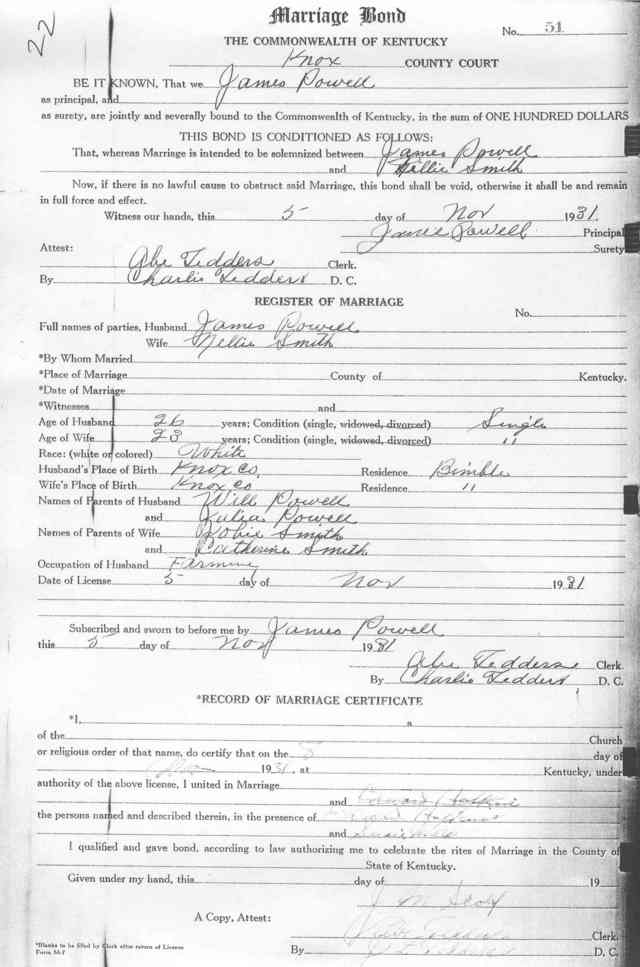 22
Marriage Bond
No. 51
THE COMMONWEALTH OF KENTUCKY
Knox COUNTY COURT
BE IT KNOWN, That we James Powell
as principal, and
as surety, are jointly and severally bound to the Commonwealth of Kentucky, in the sum of ONE HUNDRED DOLLARS
THIS BOND IS CONDITIONED AS FOLLOWS:
That, whereas Marriage is intended to be solemnized between James Powell
and Nellie Smith
Now, if there is no lawful cause to obstruct said Marriage, this bond shall be void, otherwise it shall be and remain
in full force and effect.
Witness our hands, this 5 day of Nov 1931.
James Powell Principal
Surety
Attest:
Abe Tedders Clerk.
By Charlie Tedders D. C.
REGISTER OF MARRIAGE
No.
Full names of parties, Husband James Powell
Wife Nellie Smith
*By Whom Married
*Place of Marriage County of Kentucky.
*Date of Marriage
*Witnesses and
Age of Husband 26 years; Condition (single, widowed, divorced) Single
Age of Wife 23 years; Condition (single, widowed, divorced) "
Race: (white or colored) White
Husband's Place of Birth Knox Co. Residence Bimble
Wife's Place of Birth Knox Co Residence "
Names of Parents of Husband Will Powell
and Julia Powell
Names of Parents of Wife Smith
and Catherine Smith
Occupation of Husband Farming
Date of License 5 day of Nov 1931
Subscribed and sworn to before me by James Powell
this 5 day of Nov 1931
Abe Tedders Clerk.
By Charlie Tedders D. C.
*RECORD OF MARRIAGE CERTIFICATE
*I, a
of the Church
or religious order of that name, do certify that on the 5 day of
Nov 1931, at Kentucky, under
authority of the above license, I united in Marriage
and
the persons named and described therein, in the presence of
and
I qualified and gave bond, according to law authorizing me to celebrate the rites of Marriage in the County of
State of Kentucky.
Given under my hand, this day of 19
J M
A Copy, Attest:
Clerk.
By D. C.
*Blanks to be filled by Clerk after return of License